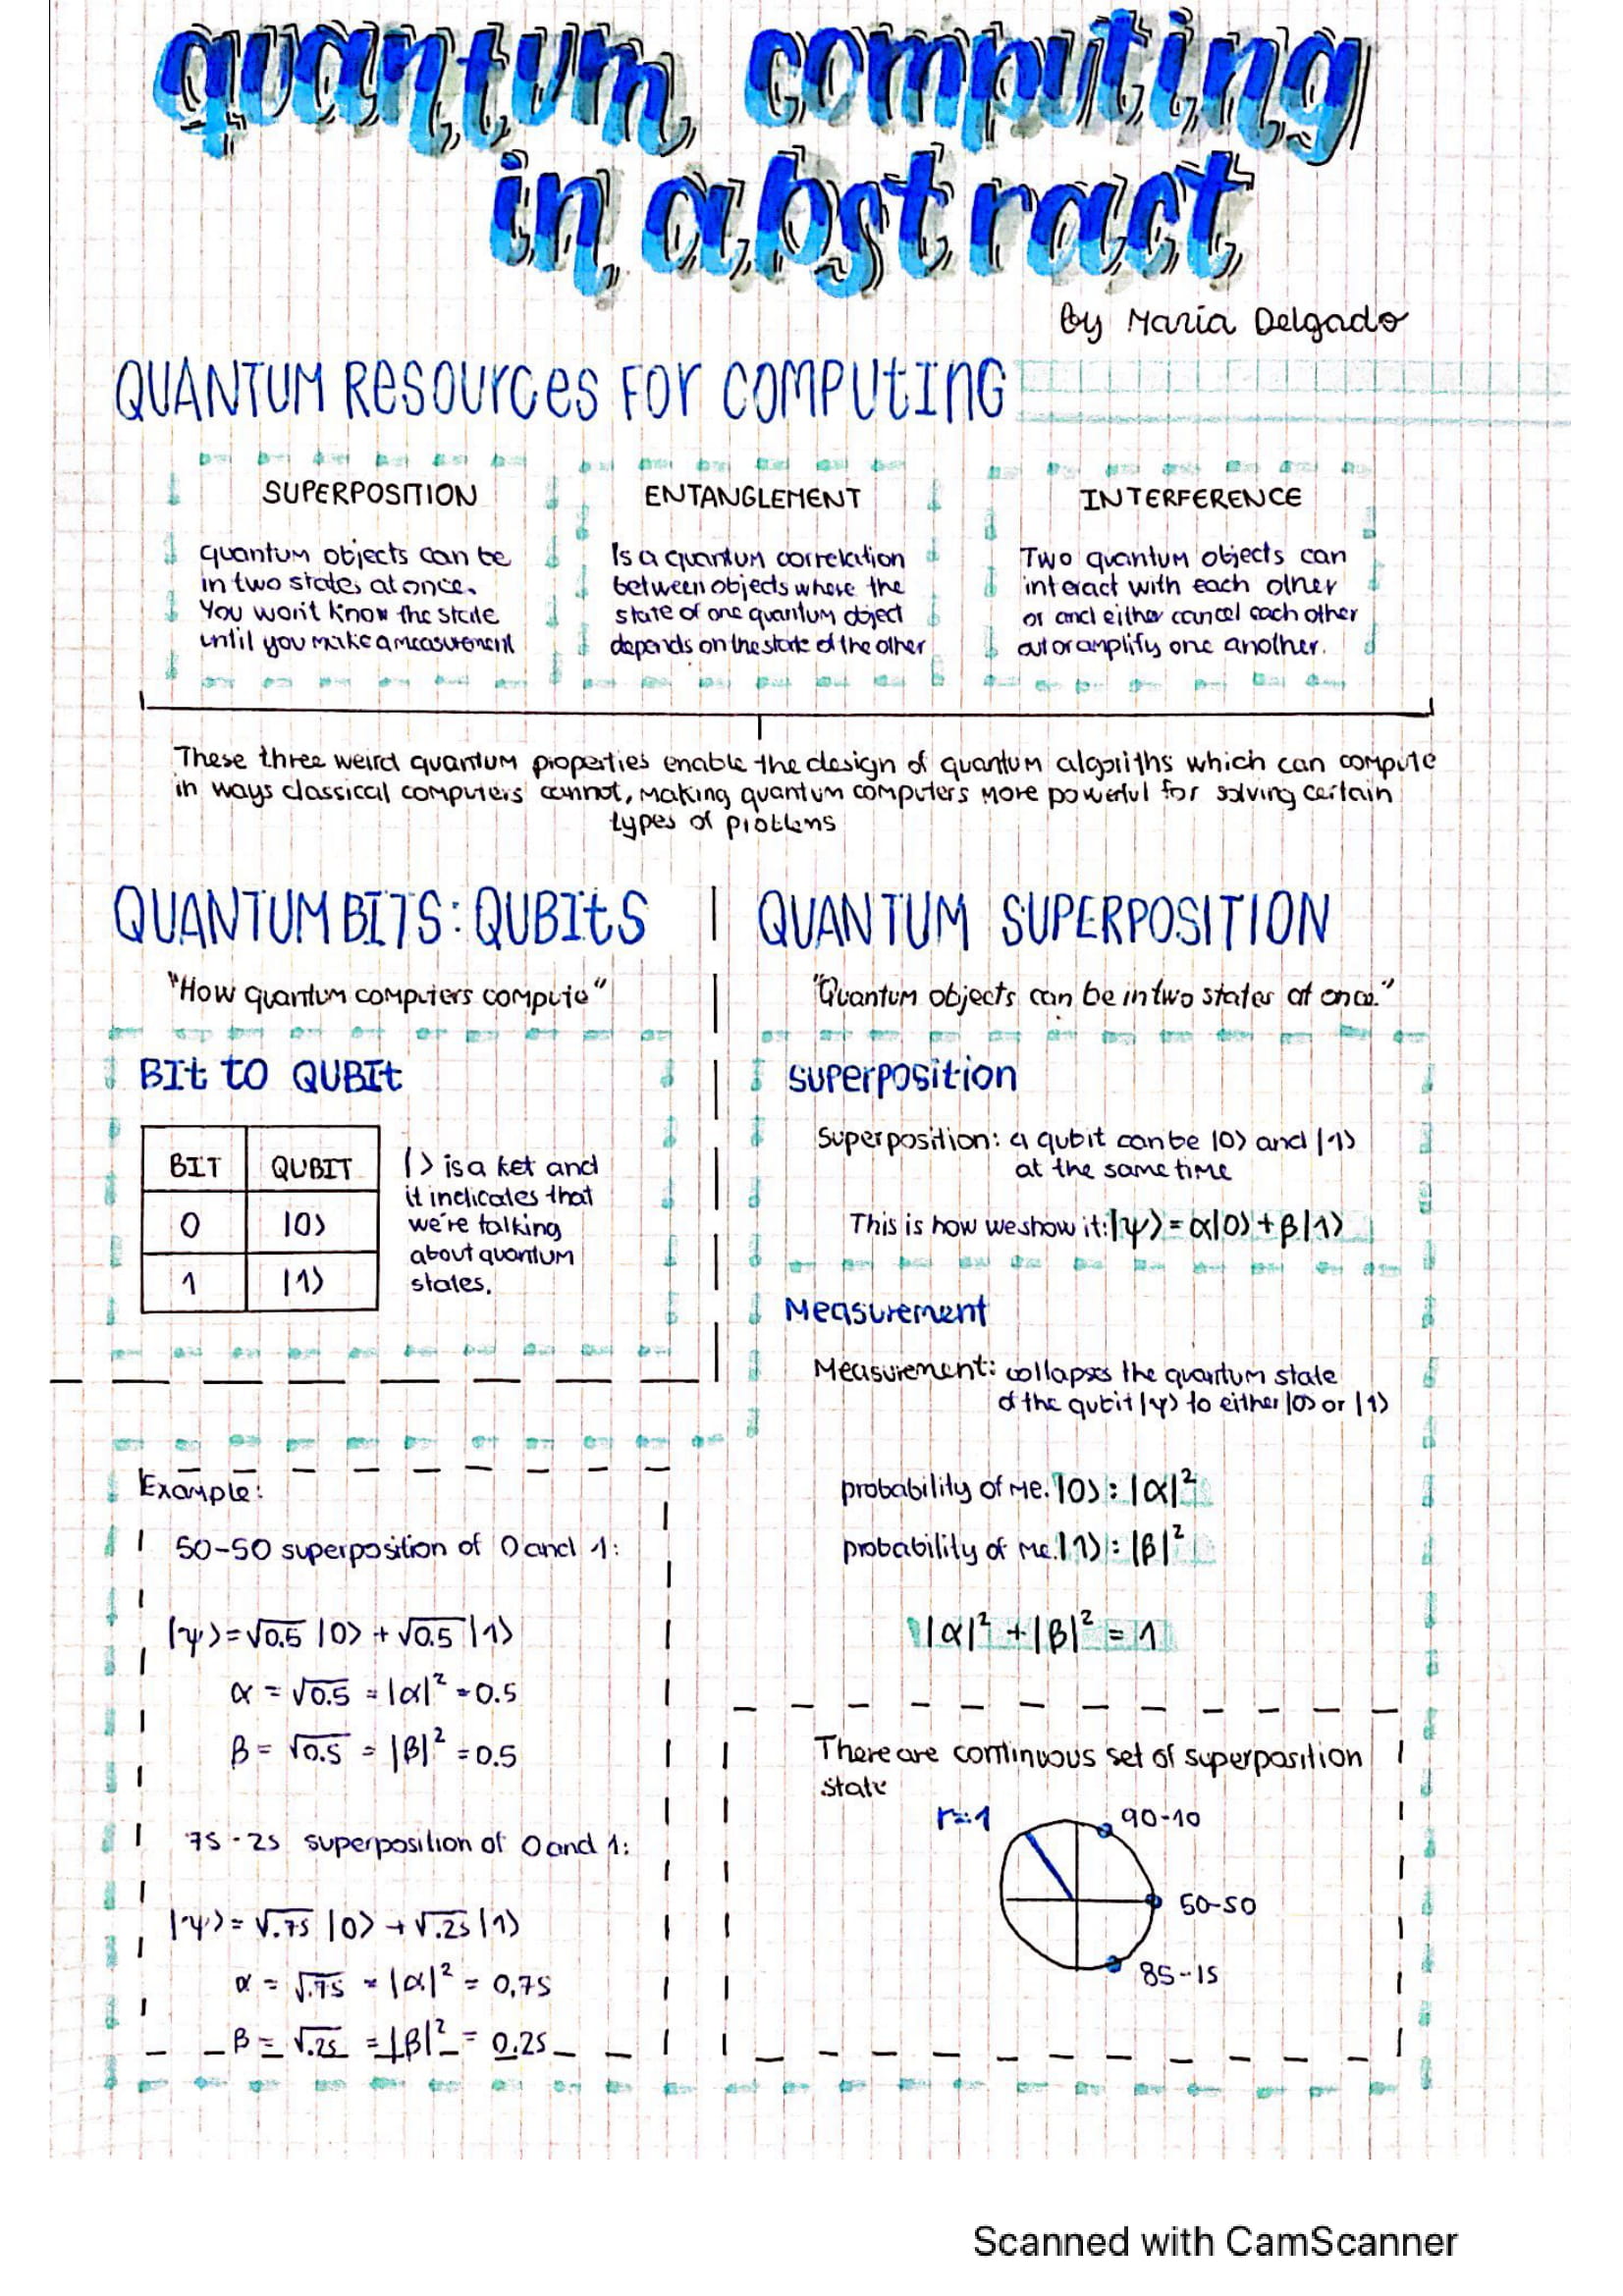 quantum computing
in abstract
by Maria Delgado
QUANTUM Resources For COMPUtING
SUPERPOSITION
quantum objects can be
in two states at once.
You won't know the state
until you make a measurement
ENTANGLEMENT
Is a quantum correlation
between objects where the
state of one quantum object
depends on the state of the other
INTERFERENCE
Two quantum objects can
interact with each other
or and either cancel each other
out or amplify one another.
These three weird quantum properties enable the design of quantum algoriths which can compute
in ways classical computers cannot, making quantum computers more powerful for solving certain
types of problems
QUANTUM BITS: QUBItS
"How quantum computers compute"
BIt to QUBIt
BIT QUBIT
0 |0⟩
1 |1⟩
|⟩ is a ket and
it indicates that
we're talking
about quantum
states.
Example:
50-50 superposition of 0 and 1:
|ψ⟩=√0.5 |0⟩ + √0.5 |1⟩
α = √0.5 = |α|² = 0.5
β = √0.5 = |β|² = 0.5
75-25 superposition of 0 and 1:
|ψ⟩ = √.75 |0⟩ + √.25 |1⟩
α = √.75 = |α|² = 0,75
β = √.25 = |β|² = 0.25
QUANTUM SUPERPOSITION
"Quantum objects can be in two states at once."
superposition
Superposition: a qubit can be |0⟩ and |1⟩
at the same time
This is how we show it: |ψ⟩ = α|0⟩ + β|1⟩
Measurement
Measurement: collapses the quantum state
of the qubit |ψ⟩ to either |0⟩ or |1⟩
probability of me. |0⟩ : |α|²
probability of me. |1⟩ : |β|²
|α|² + |β|² = 1
There are continuous set of superposition
state
r=1
90-10
50-50
85-15
Scanned with CamScanner